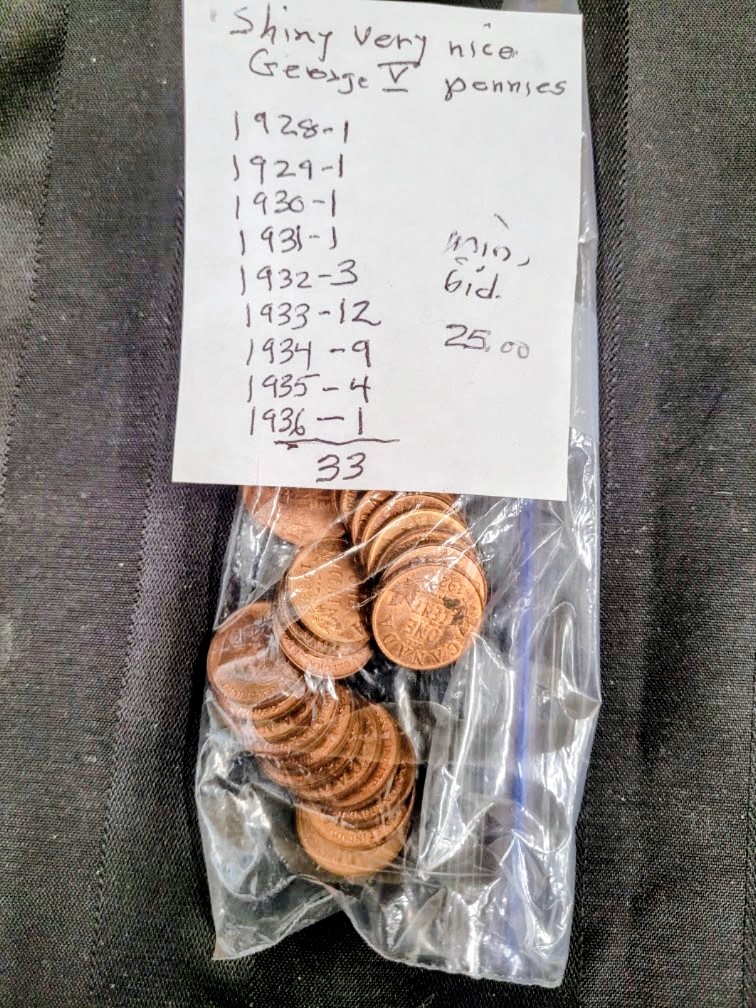 Shiny very nice
George V pennies
1928-1
1929-1
1930-1
1931-1
1932-3
1933-12
1934-9
1935-4
1936-1
33
min,
bid.
25.00
ONE
CENT
CANADA